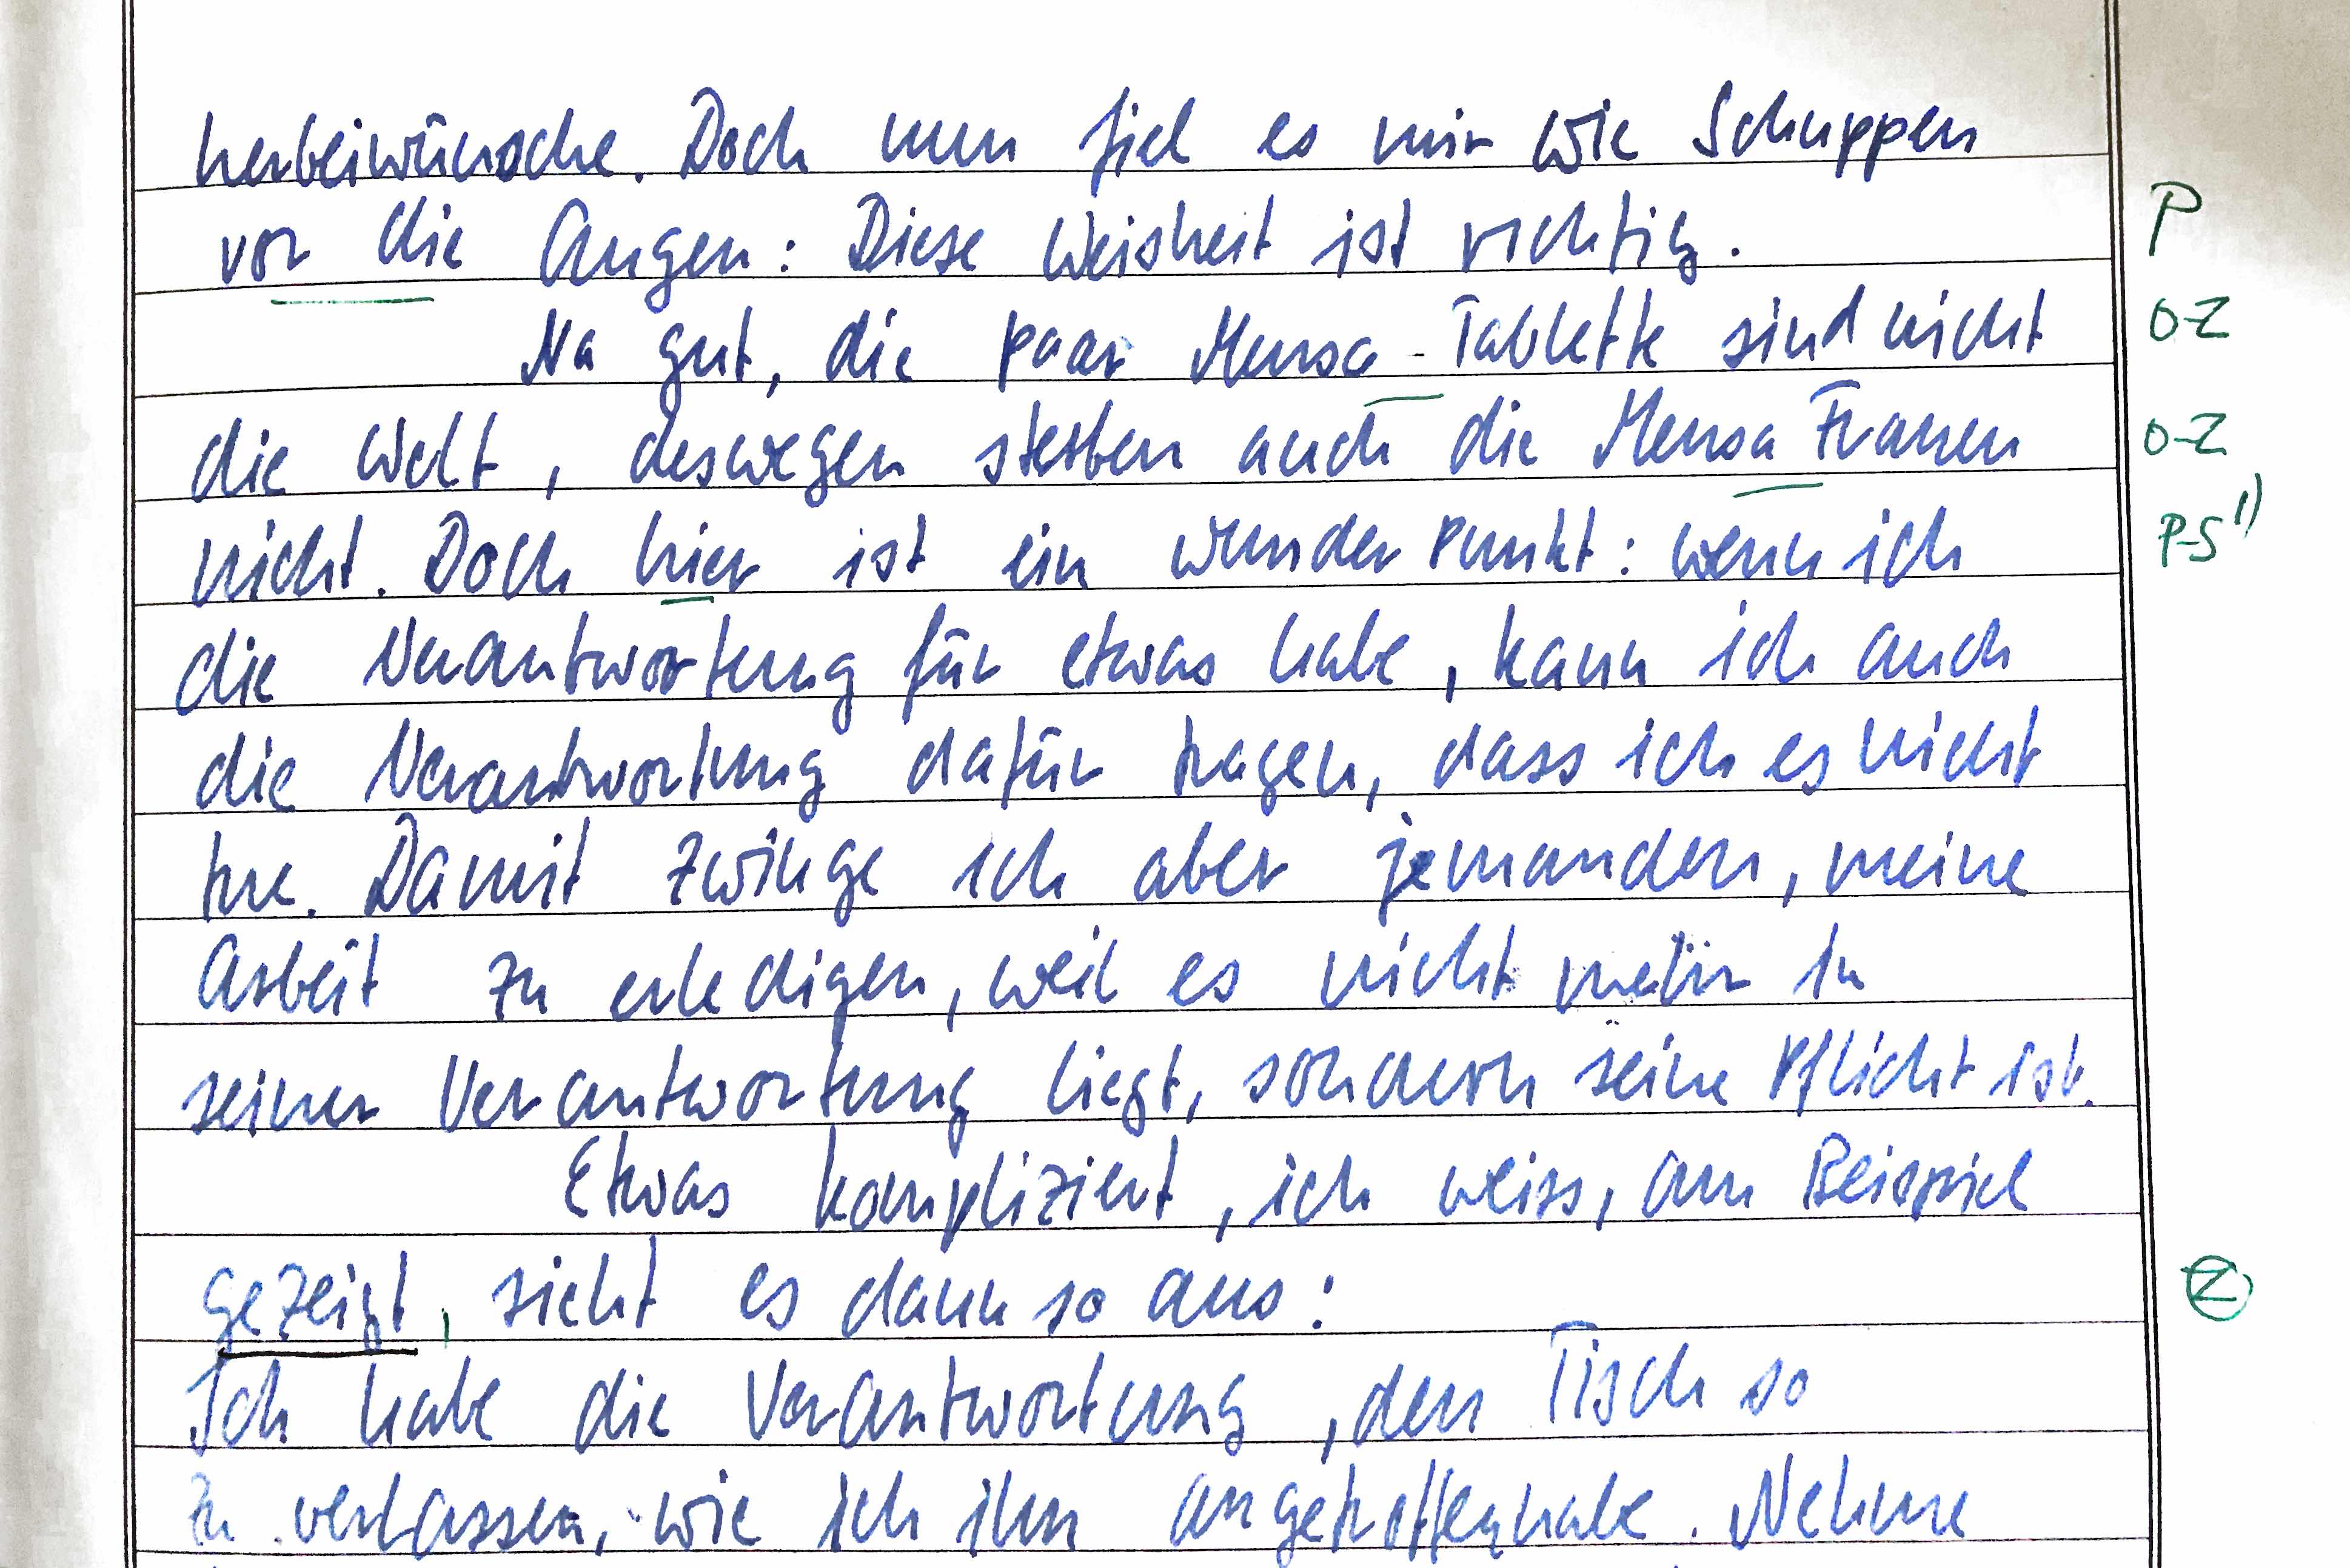 herbeiwünsche. Doch nun fiel es mir wie Schuppen
vor die Augen: Diese Weisheit ist richtig. P
Na gut, die paar Mensa-Tablette sind nicht O-Z
die Welt, deswegen sterben auch die Mensa Frauen O-Z
nicht. Doch hier ist ein wunder Punkt: wenn ich P-S 1)
die Verantwortung für etwas habe, kann ich auch
die Verantwortung dafür tragen, dass ich es nicht
tue. Damit zwinge ich aber jemanden, meine
Arbeit zu erledigen, weil es nicht mehr in
seiner Verantwortung liegt, sondern seine Pflicht ist.
Etwas kompliziert, ich weiss, am Beispiel
gezeigt, sieht es dann so aus: Z
Ich habe die Verantwortung, den Tisch so
zu verlassen, wie ich ihn angetroffen habe. Nehme